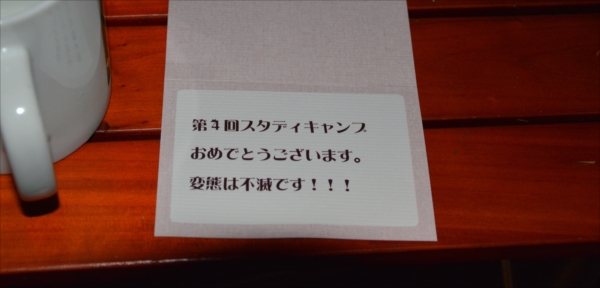 第4回スタディキャンプ
おめでとうございます。
変態は不滅です！！！